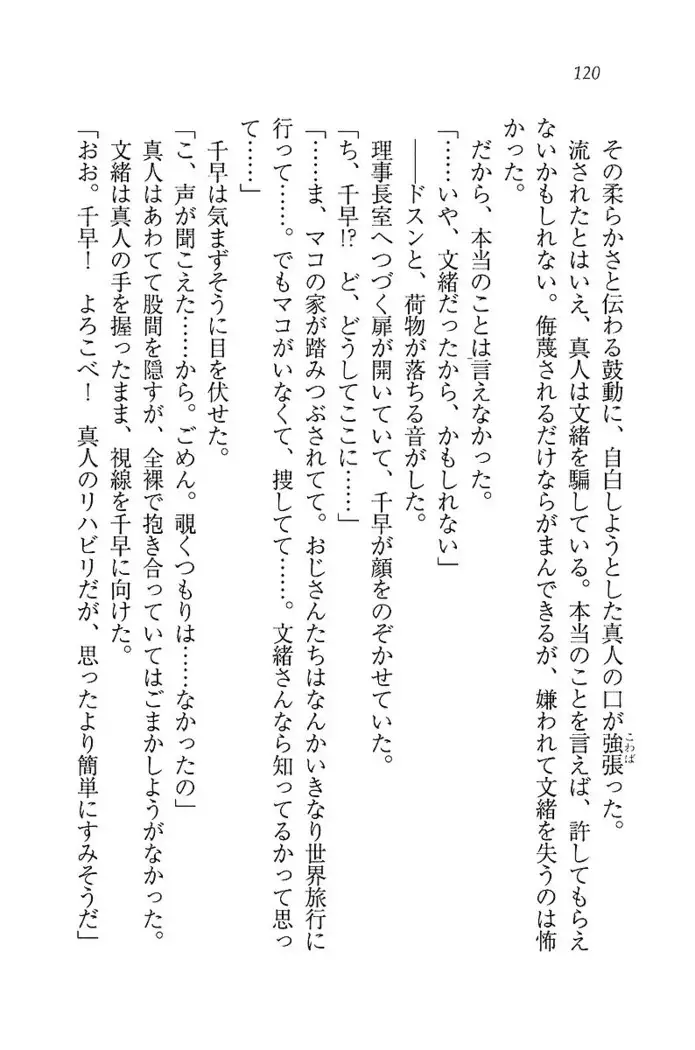 120
その柔らかさと伝わる鼓動に、自白しようとした真人の口が強張った。
こわば
流されたとはいえ、真人は文緒を騙している。本当のことを言えば、許してもらえ
ないかもしれない。侮蔑されるだけならがまんできるが、嫌われて文緒を失うのは怖
かった。
だから、本当のことは言えなかった。
「……いや、文緒だったから、かもしれない」
――ドスンと、荷物が落ちる音がした。
理事長室へつづく扉が開いていて、千早が顔をのぞかせていた。
「ち、千早!?　ど、どうしてここに……」
「……ま、マコの家が踏みつぶされてて。おじさんたちはなんかいきなり世界旅行に
行って……。でもマコがいなくて、捜してて……。文緒さんなら知ってるかって思っ
て……」
千早は気まずそうに目を伏せた。
「こ、声が聞こえた……から。ごめん。覗くつもりは……なかったの」
真人はあわてて股間を隠すが、全裸で抱き合っていてはごまかしようがなかった。
文緒は真人の手を握ったまま、視線を千早に向けた。
「おお。千早！　よろこべ！　真人のリハビリだが、思ったより簡単にすみそうだ」